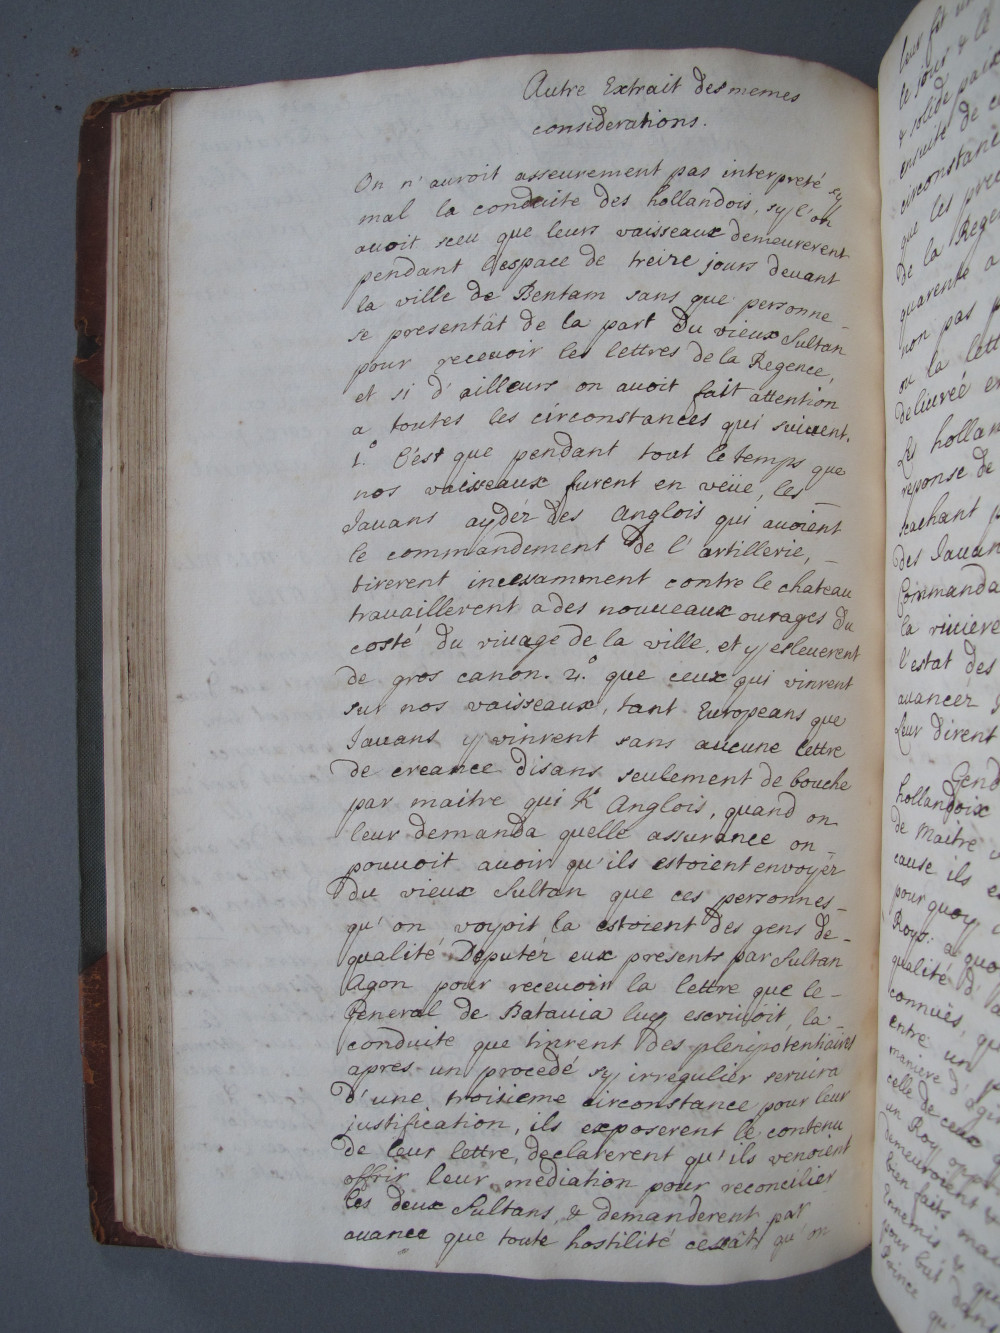 Autre Extrait des memes
considerations.
On n'auroit asseurement pas interpreté
mal la conduite des hollandois, sy l'on
auoit sceu que leurs vaisseaux demeurerent
pendant l'espace de treize jours deuant
la ville de Bentam sans que personne
se presentât de la part du vieux Sultan
pour receuoir les lettres de la Regence,
et si d'ailleurs on auoit fait attention
a toutes les circonstances qui suiuent.
1.° C'est que pendant tout le temps que
nos vaisseaux furent en veüe, les
Jauans aydéz des Anglois qui auoient
le commandement de l'artillerie,
tirerent incessamment contre le chateau
trauaillerent a des nouueaux ouurages du
costé du riuage de la ville, et y esleuerent
de gros canon. 2.° que ceux qui vinrent
sur nos vaisseaux, tant Europeans que
Jauans y vinrent sans aucune lettre
de creance disans seulement de bouche
par maitre qui Anglois, quand on
leur demanda quelle assurance on
pouuoit auoir qu'ils estoient envoyéz
du vieux Sultan que ces personnes
qu'on voyoit la estoient des gens de
qualité Deputéz eux presents par Sultan
Agon pour receuoir la lettre que le
General de Batauia luy escriuoit, la
conduite que tinrent des plenipotentiaires
apres un procedé sy irregulier seruira
d'une troisieme circonstance pour leur
justification, ils exposerent le contenu
de leur lettre, declarerent qu'ils venoient
offrir leur mediation pour reconcilier
les deux Sultans, & demanderent par
auance que toute hostilité cessât, qu'on
leur fit
le jour & le
& solide paix
ensuite de
circonstanc
que les
de la Rege
quarente a
non pas
ou la lett
deliureé en
Les hollan
reponse de
sachant
des Jauan
Commanda
la riuiere
l'estat des
auancer
leur dirent
Gend
hollandoix
de maitre
cause ils
pourquoy
Roys: a quo
qualité d'
connuës, que
entre un
maniere d'agir
celle de ceux
un Roy
demeuroient
bien faits
Ennemis, & que
pour but dans
Prince